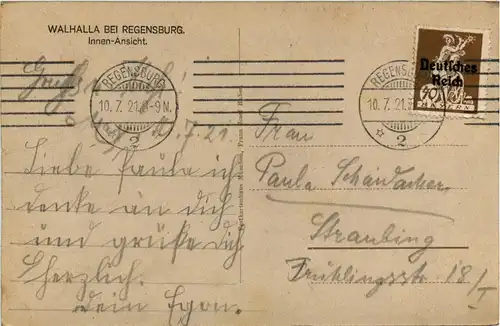 WALHALLA BEI REGENSBURG.
Innen-Ansicht.
REGENSBURG
10. 7. 21. 8-9 N.
2
REGENSBURG
10. 7. 21.
2
Deutsches
Reich
40
BAYERN
10.7.21
Liebe Paula ich
denke an dich
und grüße dich
herzlich.
dein Egon.
Frau
Paula Schaidacher
Straubing
Frühlingsstr 18/I